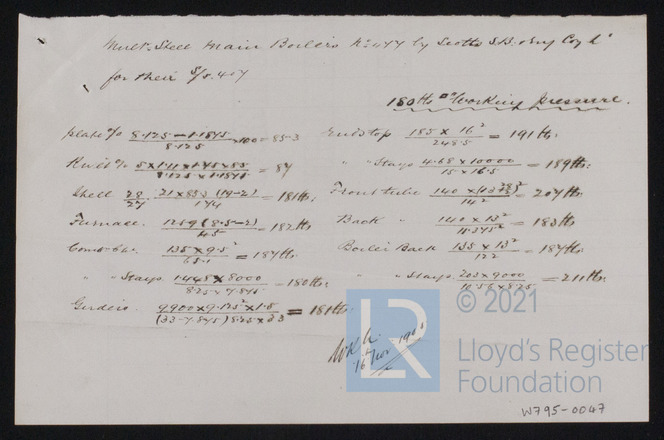 Mult. Steel Main Boilers No 477 by Scotts S.B. & Eng Coy Ld
for their S/S. 407
180 lbs □" Working Pressure.
Plate % (8.125 - 1.1875)/8.125 × 100 = 85.3
Rivet % = 87
Shell 28/27 · 21 × 85.3 (19-2)/174 = 181 lbs.
Furnace 1259 (8.5-2)/45 = 182 lbs
Comb. Chr. 135 × 9.5²/65.1 = 187 lbs
" " Stays × 8000/8.25 × 7.875 = 180 lbs.
Girders 9900 × 9.125² × 1.8/(33-7.875) 8.25 × 33 = 181 lbs.
End s top 185 × 16²/248.5 = 191 lbs.
" " Stays 4.68 × 10000/15 × 16.5 = 189 lbs.
Front tube = 207 lbs.
Back " 140 × 13²/11.375² = 183 lbs
Boiler Back 135 × 13²/122 = 187 lbs.
" " Stays 203 × 9000/10.56 × 8.25 = 211 lbs.
16 Nov 1905
© 2021
LR
Lloyd's Register
Foundation
W795-0047